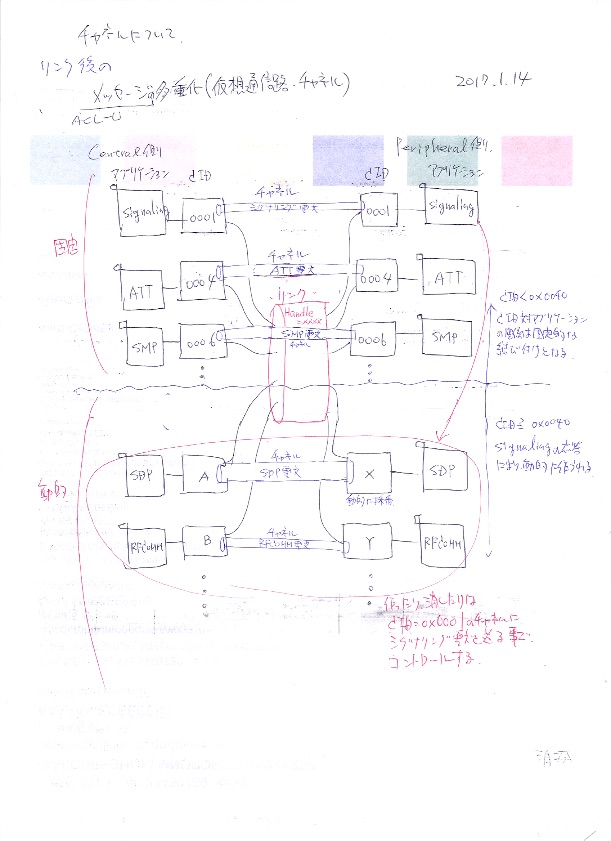 チャネルについて
リンク後の
メッセージ多重化(仮想通信路・チャネル)
2017.1.14
ACL-U
Central側
Peripheral側
アプリケーション
cID
cID
アプリケーション
Signaling
0001
チャネル
シグナリング電文
0001
Signaling
固定
ATT
0004
チャネル
ATT電文
0004
ATT
リンク
Handle
xxxx
SMP
0006
SMP電文
チャネル
0006
SMP
cID<0x0040
cID対アプリケーション
の関係は固定的な
結び付けとなる
cID≧0x0040
Signalingの応答
により動的に作られる
動的
SDP
A
チャネル
SDP電文
X
SDP
RFCOMM
B
チャネル
RFCOMM電文
Y
RFCOMM
作ったり消したりは
cID=0x0001のチャネルに
シグナリング電文を送る事で
コントロールする